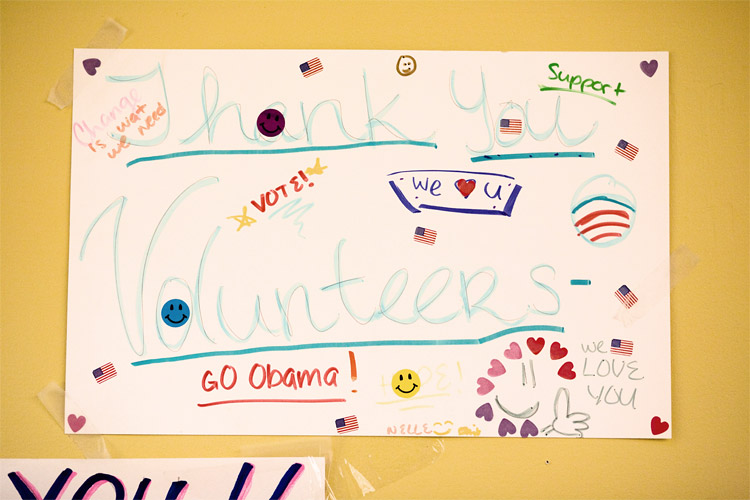 Thank You
Support
Change
is wat
we need
VOTE!
We ♥ U
Volunteers-
GO Obama!
HOPE!
We
LOVE
YOU
NELLE
YOU